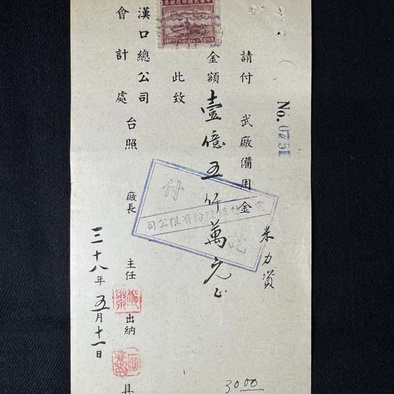 No. 0751
請付 武廠備用金
米力資
金額 壹億五仟萬元正
此致
漢口總公司
會計處 台照
廠長
主任
出納
三十八年五月十一日
具
付
份有限公司
訖
3000